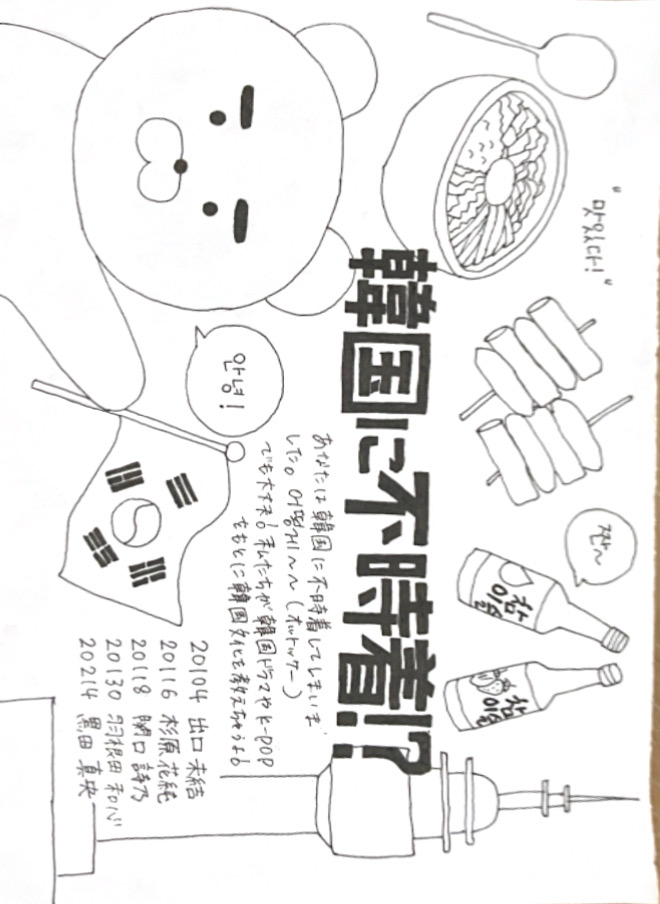 "맛있다!"
짠~
참
이슬
참
이슬
韓国に不時着!?
あなたは韓国に不時着してしまいま
した。어떻게~~(オットッケー)
でも大丈夫!私たちが韓国ドラマやK-POP
をもとに韓国文化を教えちゃうよ!
안녕!
20104 出口 未結
20116 杉原 花純
20118 関口 詩乃
20130 羽根田 和心
20214 黒田 真央